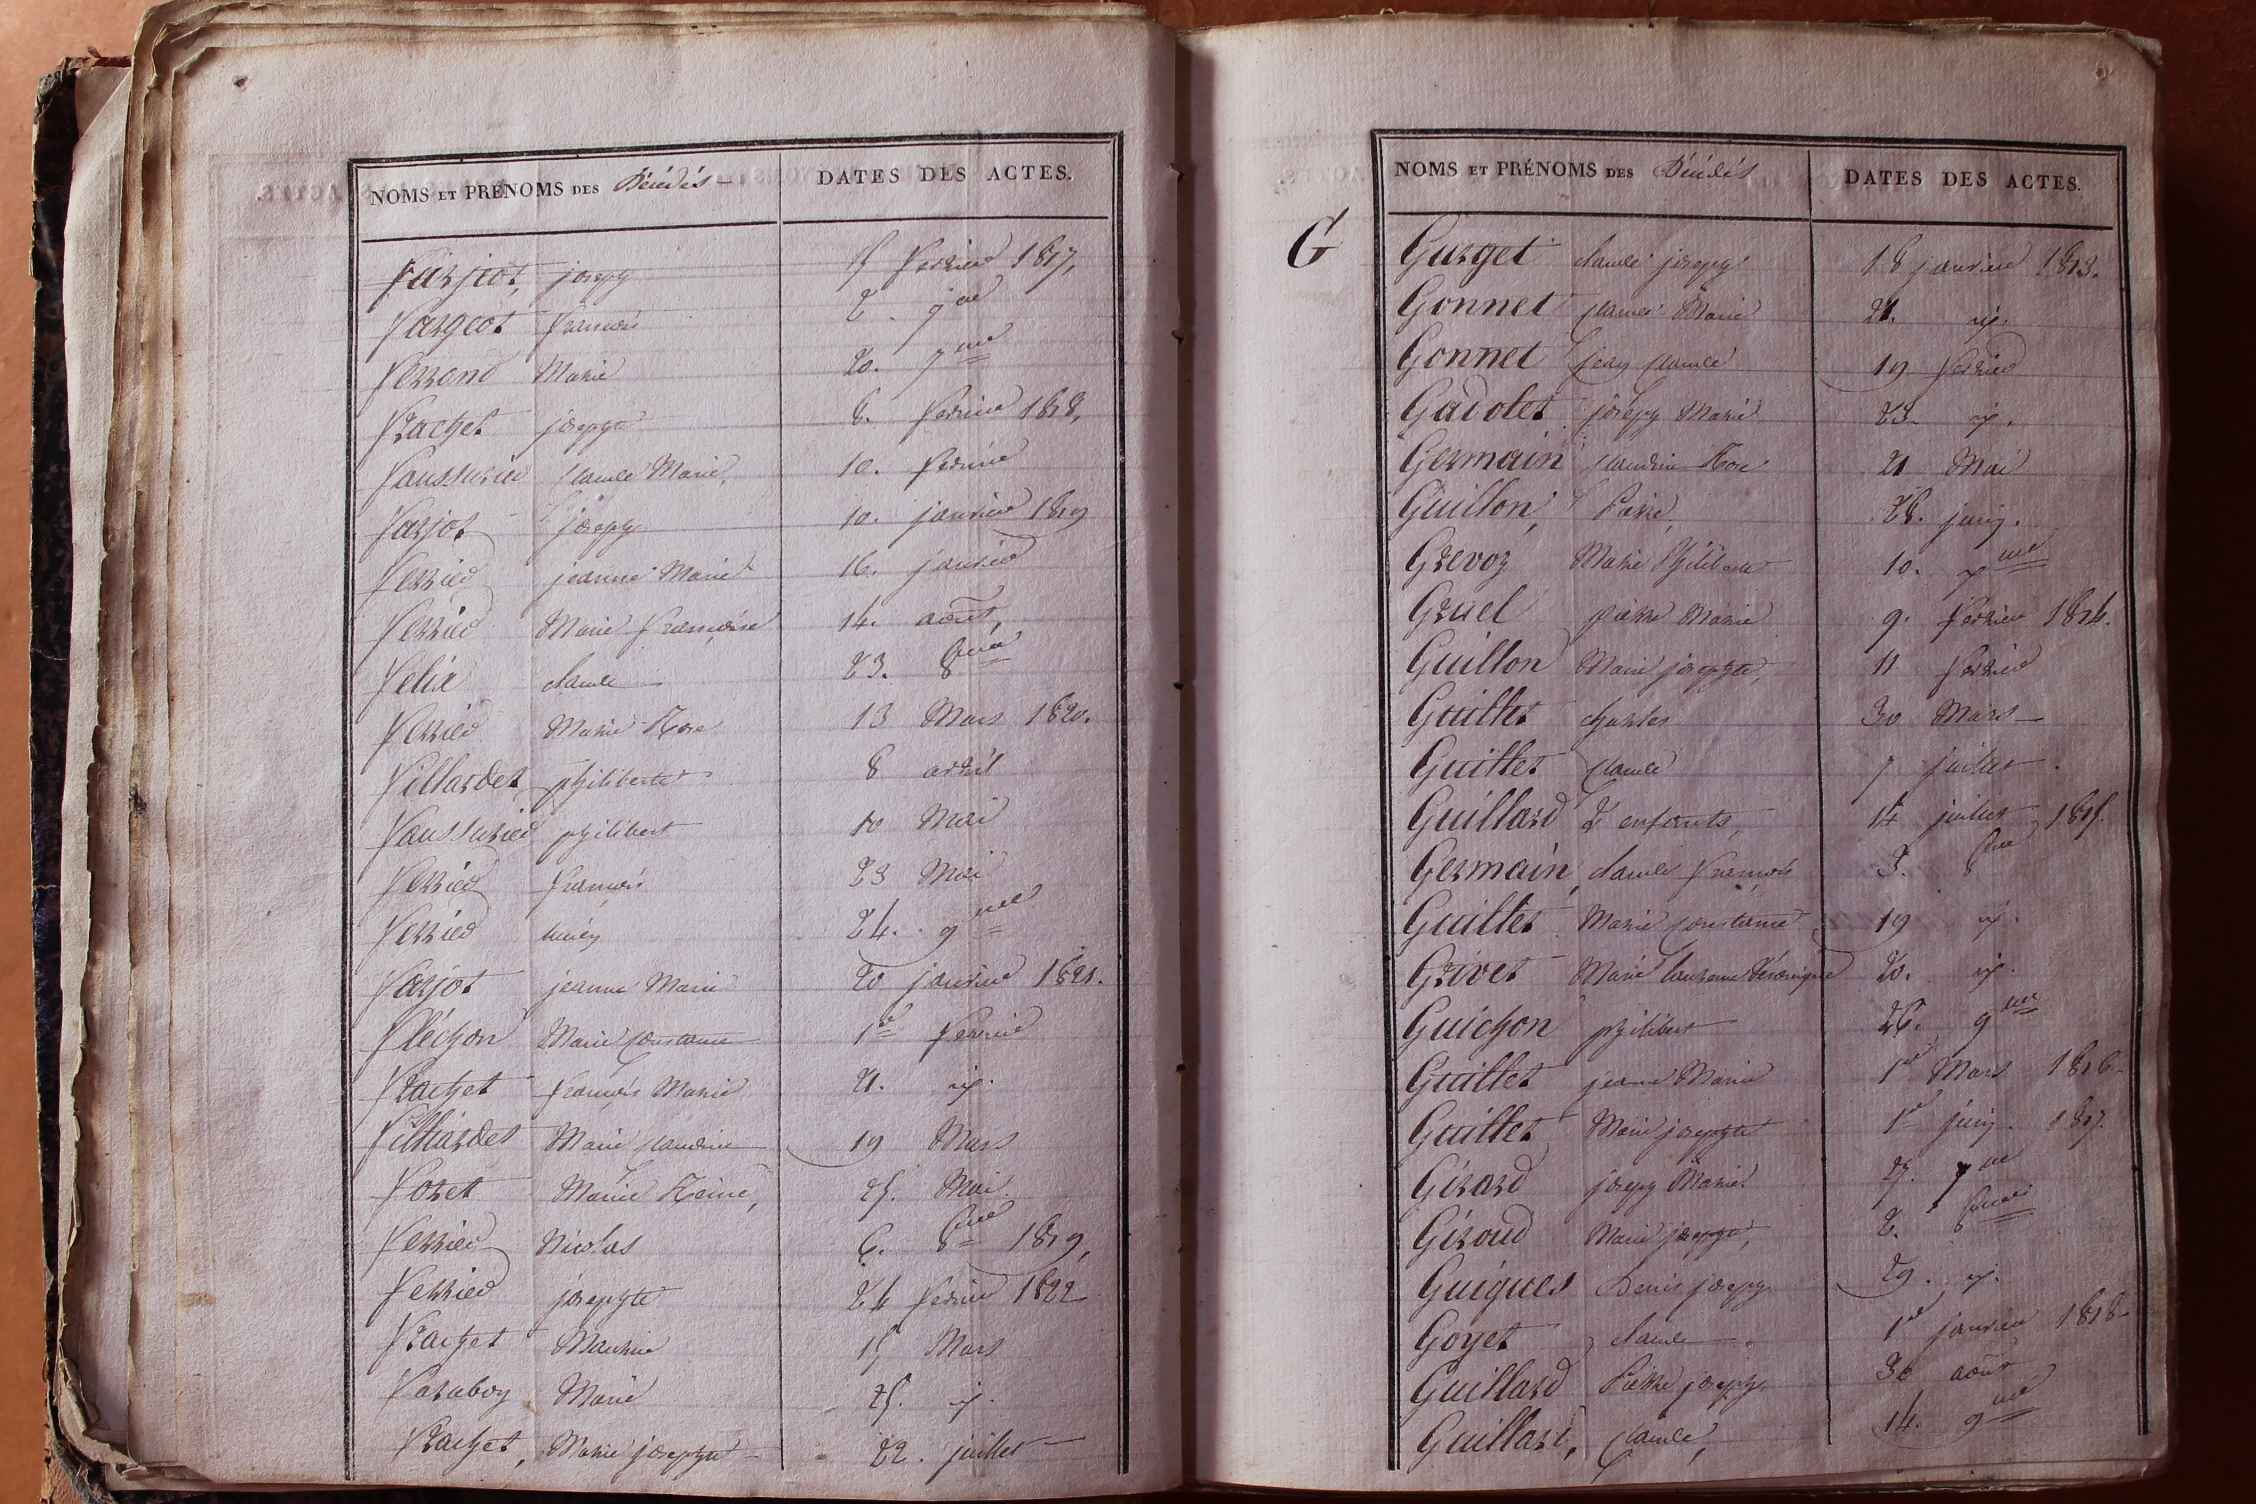 NOMS ET PRÉNOMS DES Décédés DATES DES ACTES.
Farjiot, joseph 5 fevrier 1817,
Fargeot francois 2. 9bre
Ferrand Marie 20. 7bre
Frachet josephte 8. fevrier 1818,
Faussurier claude Marie, 10. fevrier
Farjot joseph 10. janvier 1819
Ferrier jeanne Marie 16. janvier
Ferrier Marie francoise 14. aout,
Felix claude 23. 8bre
Ferrier Marie Rose 13 Mars 1820.
Fillardet philiberte 8 avril
Faussurier philibert 10 Mai
Ferrier francois 23 Mai
Ferrier 24. 9bre
Farjot jeanne Marie 20 janvier 1821.
Fléchon Marie constance 1er fevrier
Frachet francois Marie 21. id.
Filliardet Marie claudine 19 Mars
Foret Marie Reine, 25. Mai
Ferrier Nicolas 6. 8bre 1819,
Ferrier josephte 24 fevrier 1822
Frachet 15 Mars
Faraboy Marie 25. id.
Frachet, Marie josephte 22. juillet
NOMS ET PRÉNOMS DES Décédés DATES DES ACTES.
G
Gurget claude joseph 18 janvier 1813.
Gonnet claude Marie 21. id.
Gonnet jean claude 19 fevrier
Gadolet joseph Marie 23. id.
Germain claudine Rose 21 Mai
Guillon, Pierre, 28. juin.
Grevoz Marie Philiberte 10.
Gruel pierre Marie 9. fevrier 1814.
Guillon Marie josephte, 11 fevrier
Guillet charles 30 Mars
Guillet claude 7 juillet
Guillard 2 enfants, 14 juillet 1815.
Germain claude francois 3. 8bre
Guillet Marie constance 19 id.
Grivet Marie Véronique 20. id.
Guichon philibert 26. 9bre
Guillet jeanne Marie 1er Mars 1816
Guillet Marie josephte 1er juin. 1817.
Gérard joseph Marie 25. 7bre
Géroud Marie josephte, 2. 8bre
Guigues Denis joseph 29. id.
Goyet claude 1er janvier 1818
Guillard Pierre joseph 30 aout
Guillard, claude, 14. 9bre